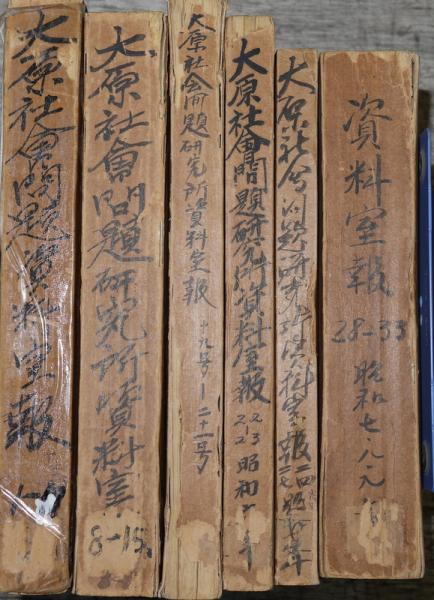 大原社會問題資料室報
1-7
大原社會問題研究所資料室
8-15
大原社會問題研究所資料室報 十九号ー二十一号
大原社會問題研究所資料室報
22
23
昭和
大原社会问题研究所資料室報
資料室報
28-33
昭和七・八・九